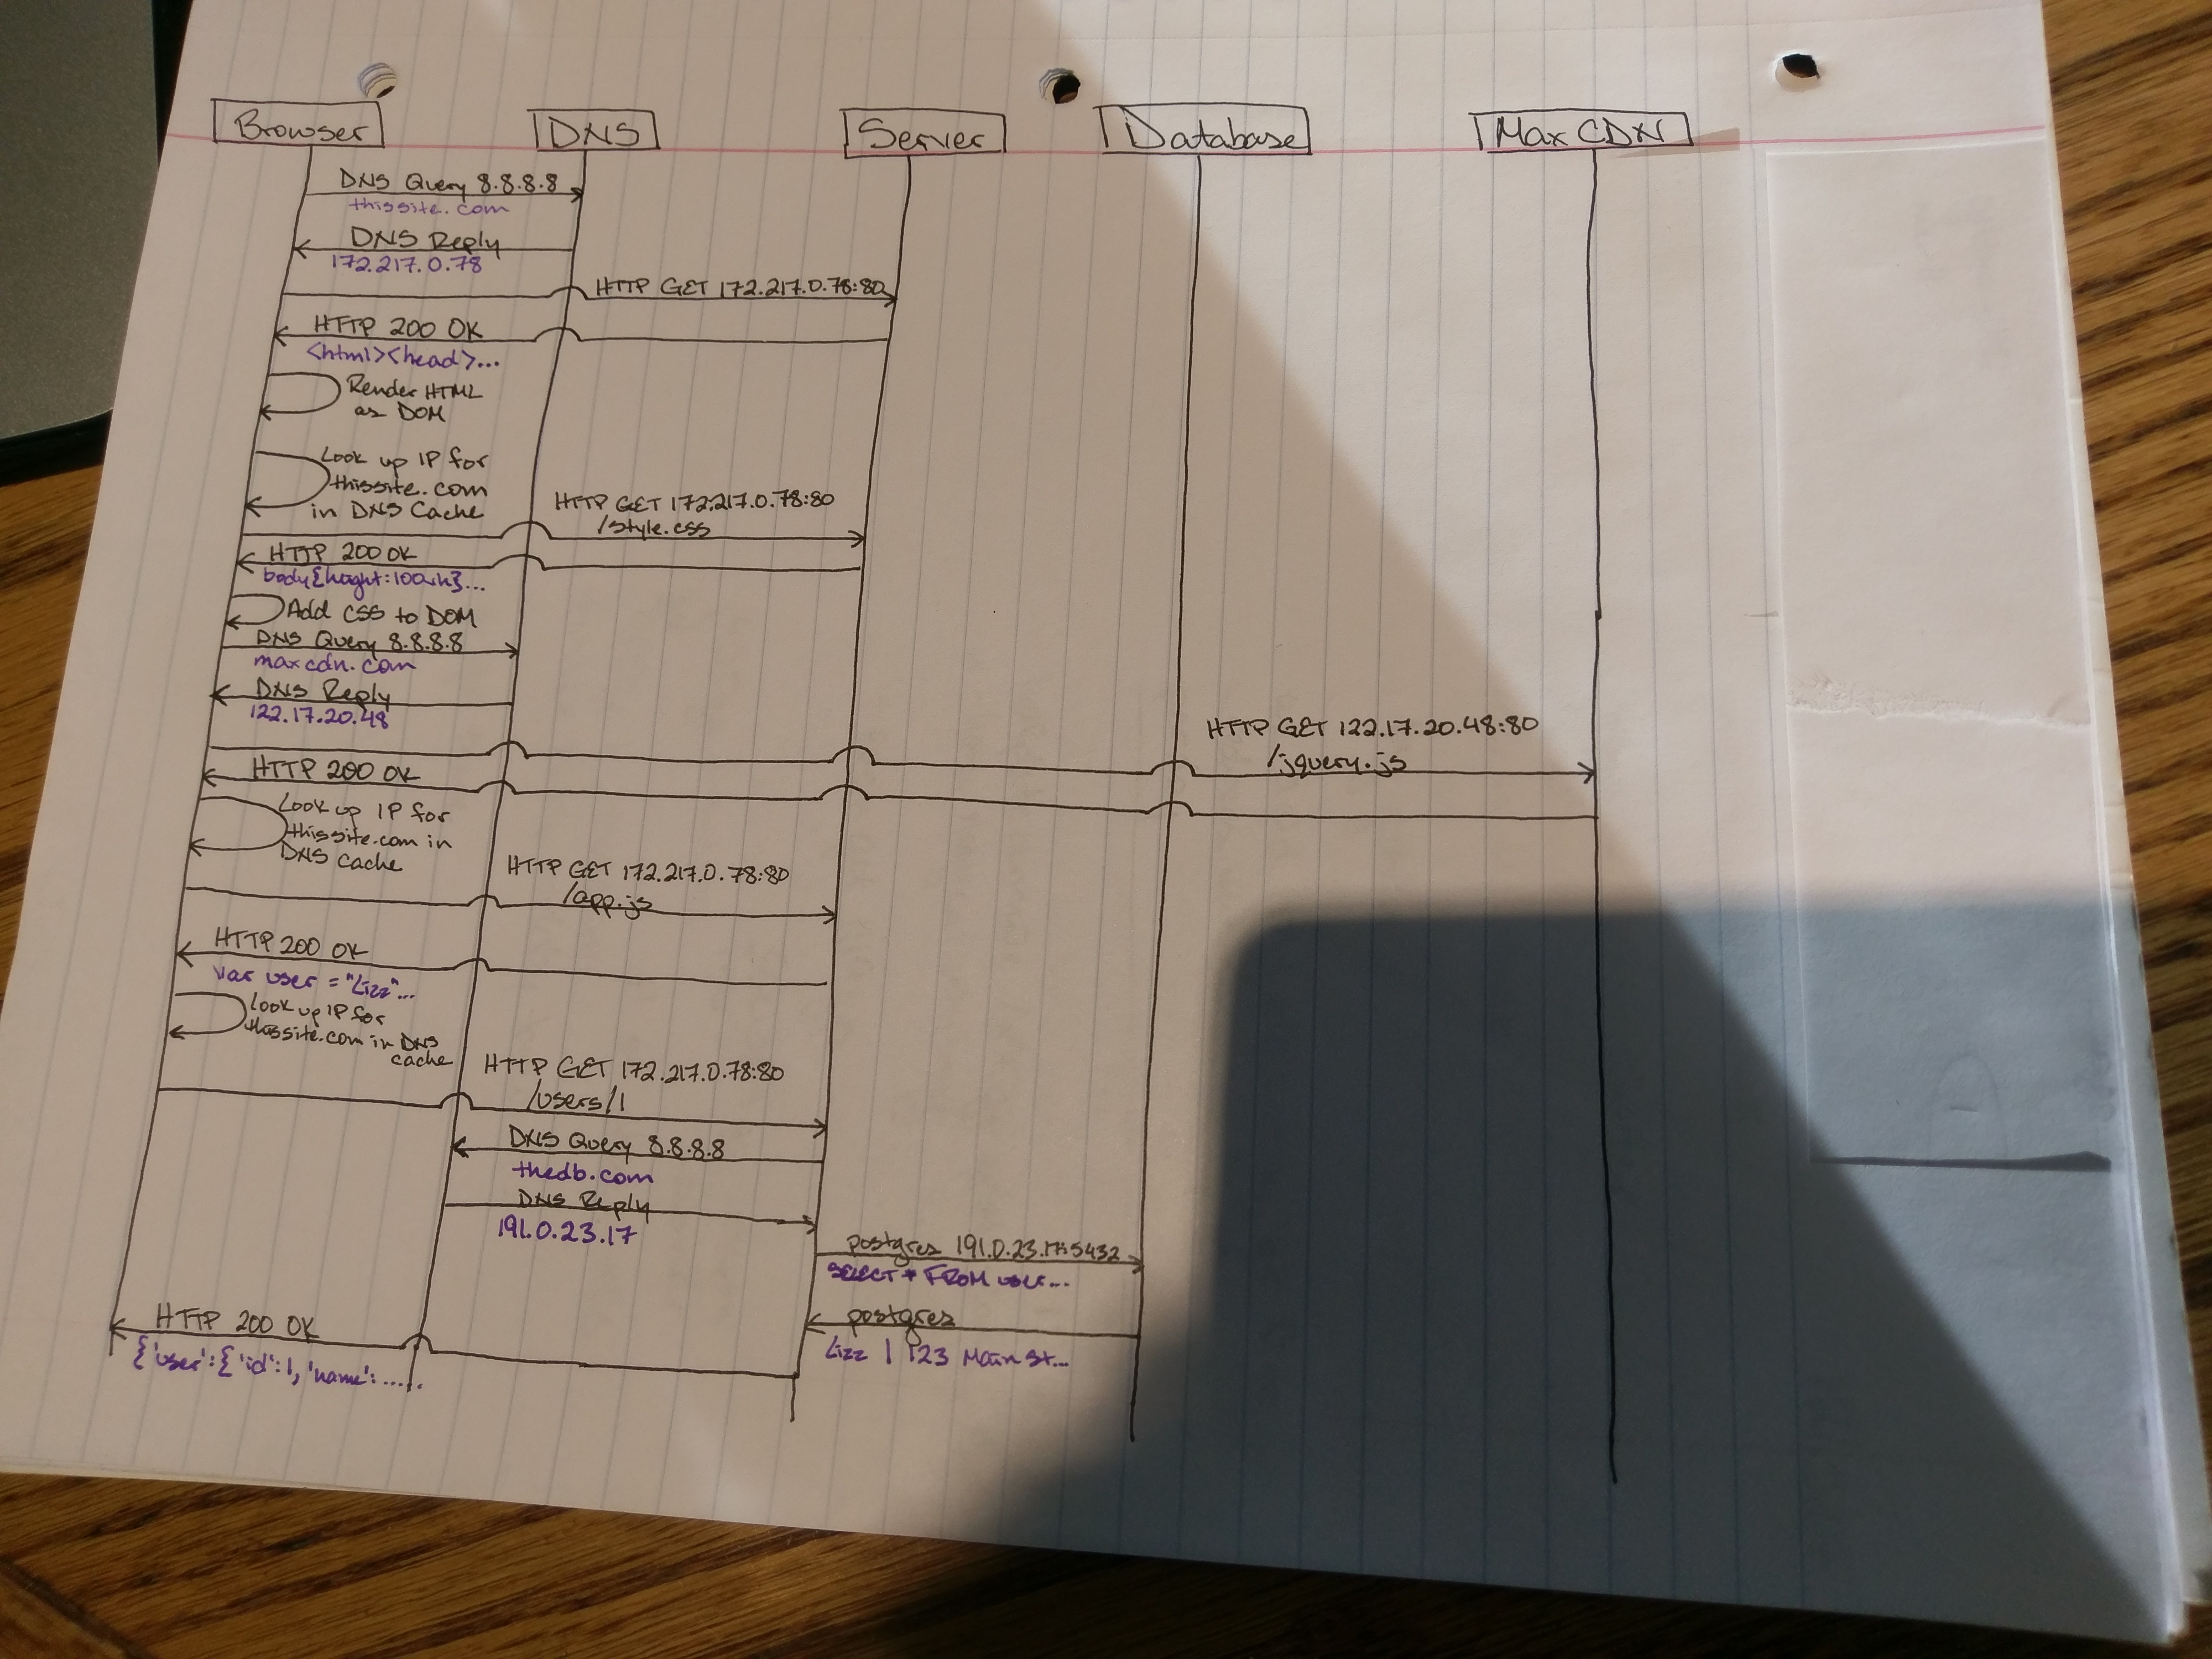 Browser
DNS
Server
Database
Max CDN
DNS Query 8.8.8.8
thissite.com
DNS Reply
172.217.0.78
HTTP GET 172.217.0.78:80
HTTP 200 OK
<html><head>...
Render HTML
as DOM
Look up IP for
thissite.com
in DNS Cache
HTTP GET 172.217.0.78:80
/style.css
HTTP 200 OK
body{height:100vh}...
Add CSS to DOM
DNS Query 8.8.8.8
maxcdn.com
DNS Reply
122.17.20.48
HTTP GET 122.17.20.48:80
/jquery.js
HTTP 200 OK
Look up IP for
thissite.com in
DNS cache
HTTP GET 172.217.0.78:80
/app.js
HTTP 200 OK
var user = "Lizz"...
Look up IP for
thissite.com in DNS
cache
HTTP GET 172.217.0.78:80
/users/1
DNS Query 8.8.8.8
thedb.com
DNS Reply
191.0.23.17
postgres 191.0.23.17:5432
SELECT * FROM user...
postgres
Lizz | 123 Main St...
HTTP 200 OK
{'user':{'id':1, 'name':......